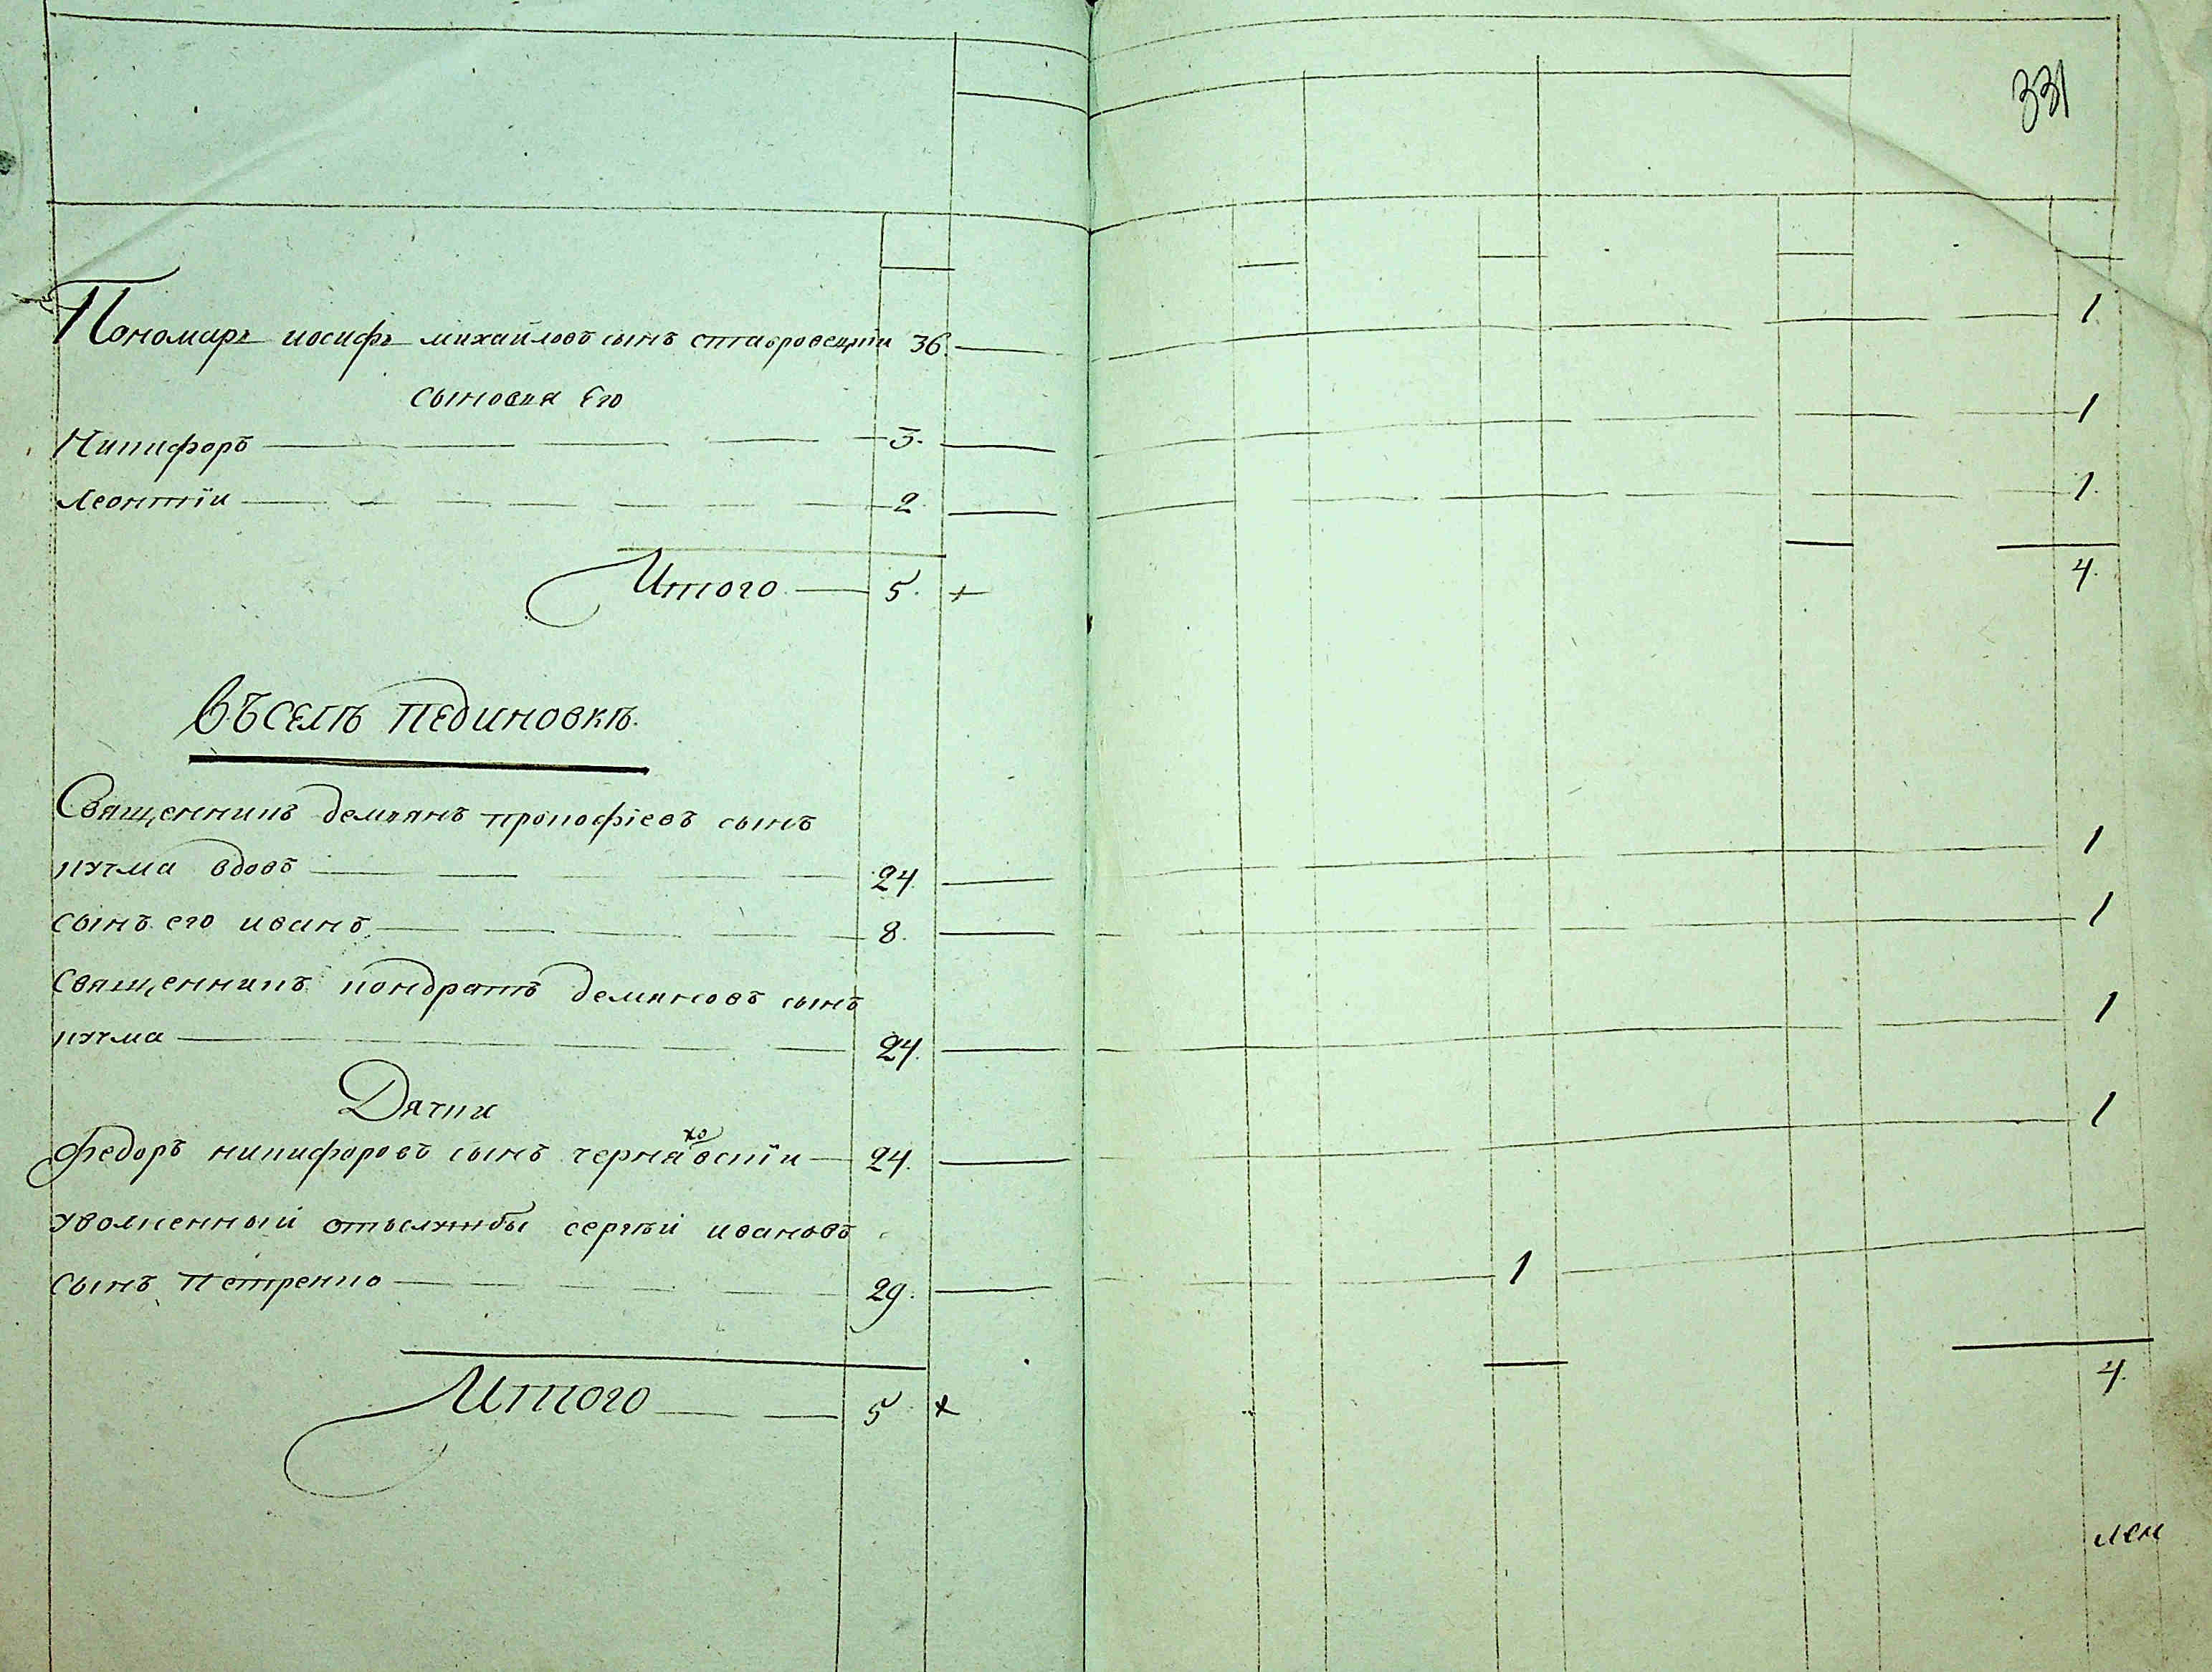 331
Пономарь иосифъ михайловъ сынъ ставровецкіи 36. 1
сыновья Его
Никифоръ 3. 1
леонтїи 2 1.
Итого 5. + 4.
Въ селѣ пединовкѣ.
Священникъ демянъ прокофіевъ сынъ
кучма вдовъ 24. 1
сынъ его иванъ 8. 1
Священникъ кондратъ демяновъ сынъ
кучма 24. 1
Дячки
Федоръ никифоровъ сынъ черняховскїи 24. 1
уволненный отъ службы сергѣй ивановъ
сынъ Петренко 29. 1
Итого 5 + 4.